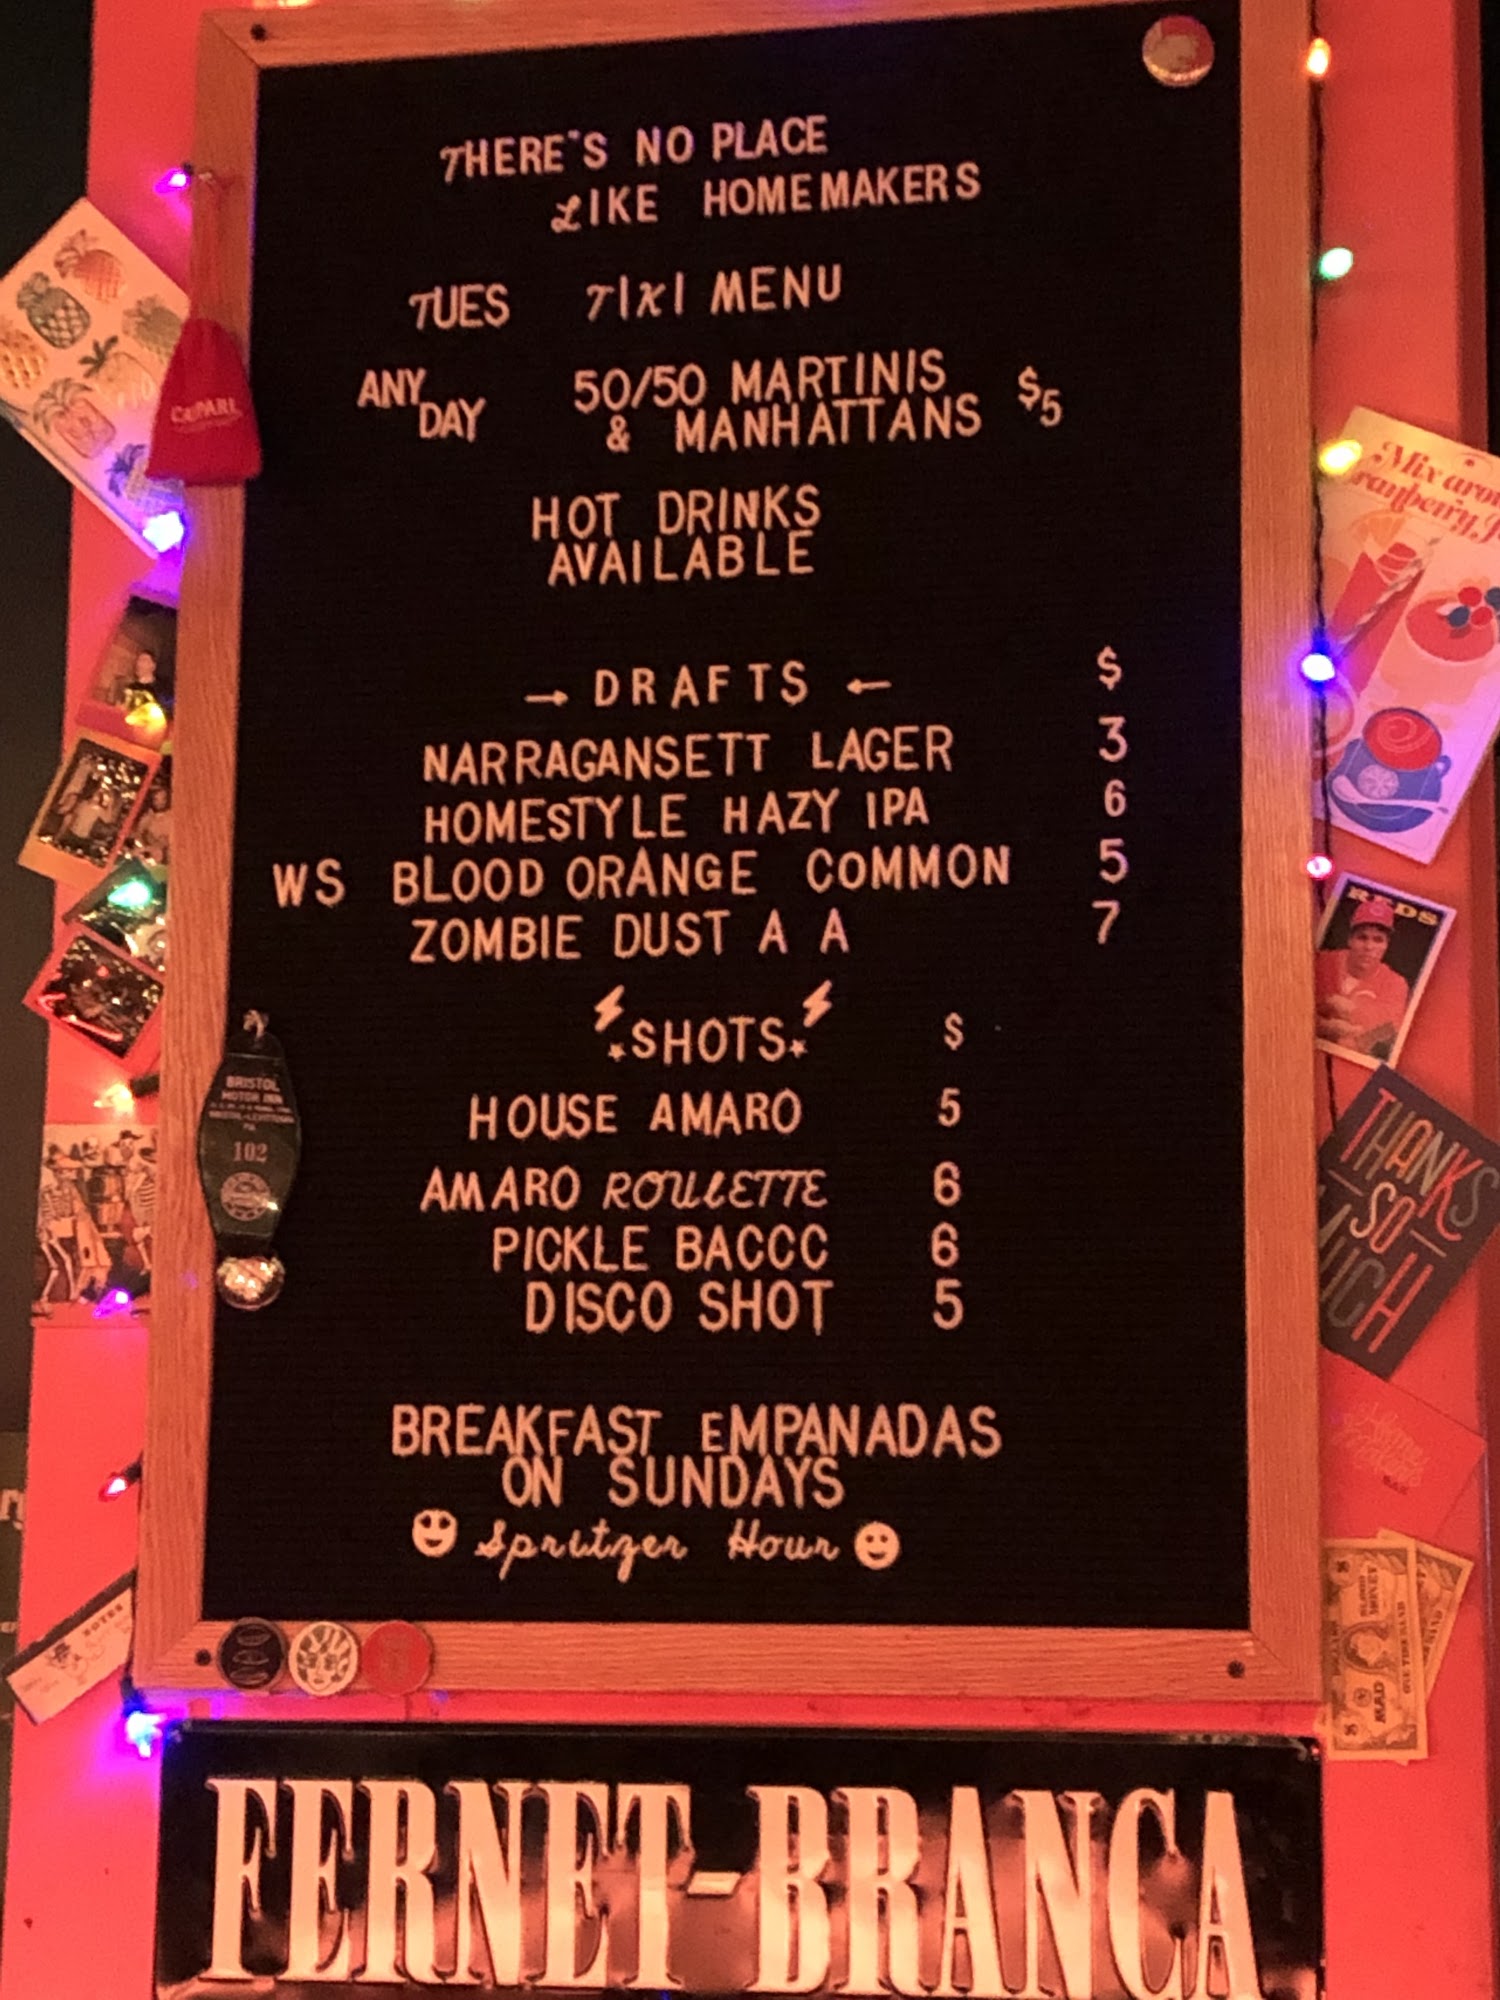 THERE'S NO PLACE
LIKE HOMEMAKERS
TUES TIKI MENU
ANY DAY 50/50 MARTINIS & MANHATTANS $5
HOT DRINKS
AVAILABLE
→ DRAFTS ← $
NARRAGANSETT LAGER 3
HOMESTYLE HAZY IPA 6
WS BLOOD ORANGE COMMON 5
ZOMBIE DUST A A 7
SHOTS $
HOUSE AMARO 5
AMARO ROULETTE 6
PICKLE BACCC 6
DISCO SHOT 5
BREAKFAST EMPANADAS
ON SUNDAYS
Spritzer Hour
FERNET-BRANCA
CAMPARI
BRISTOL
MOTOR INN
BRISTOL-LEVITTOWN
PA
102
NOTES
Mix
REDS
THANKS
SO
MUCH
BAR
BLOOD
MONEY
MAD
ONE THOUSAND